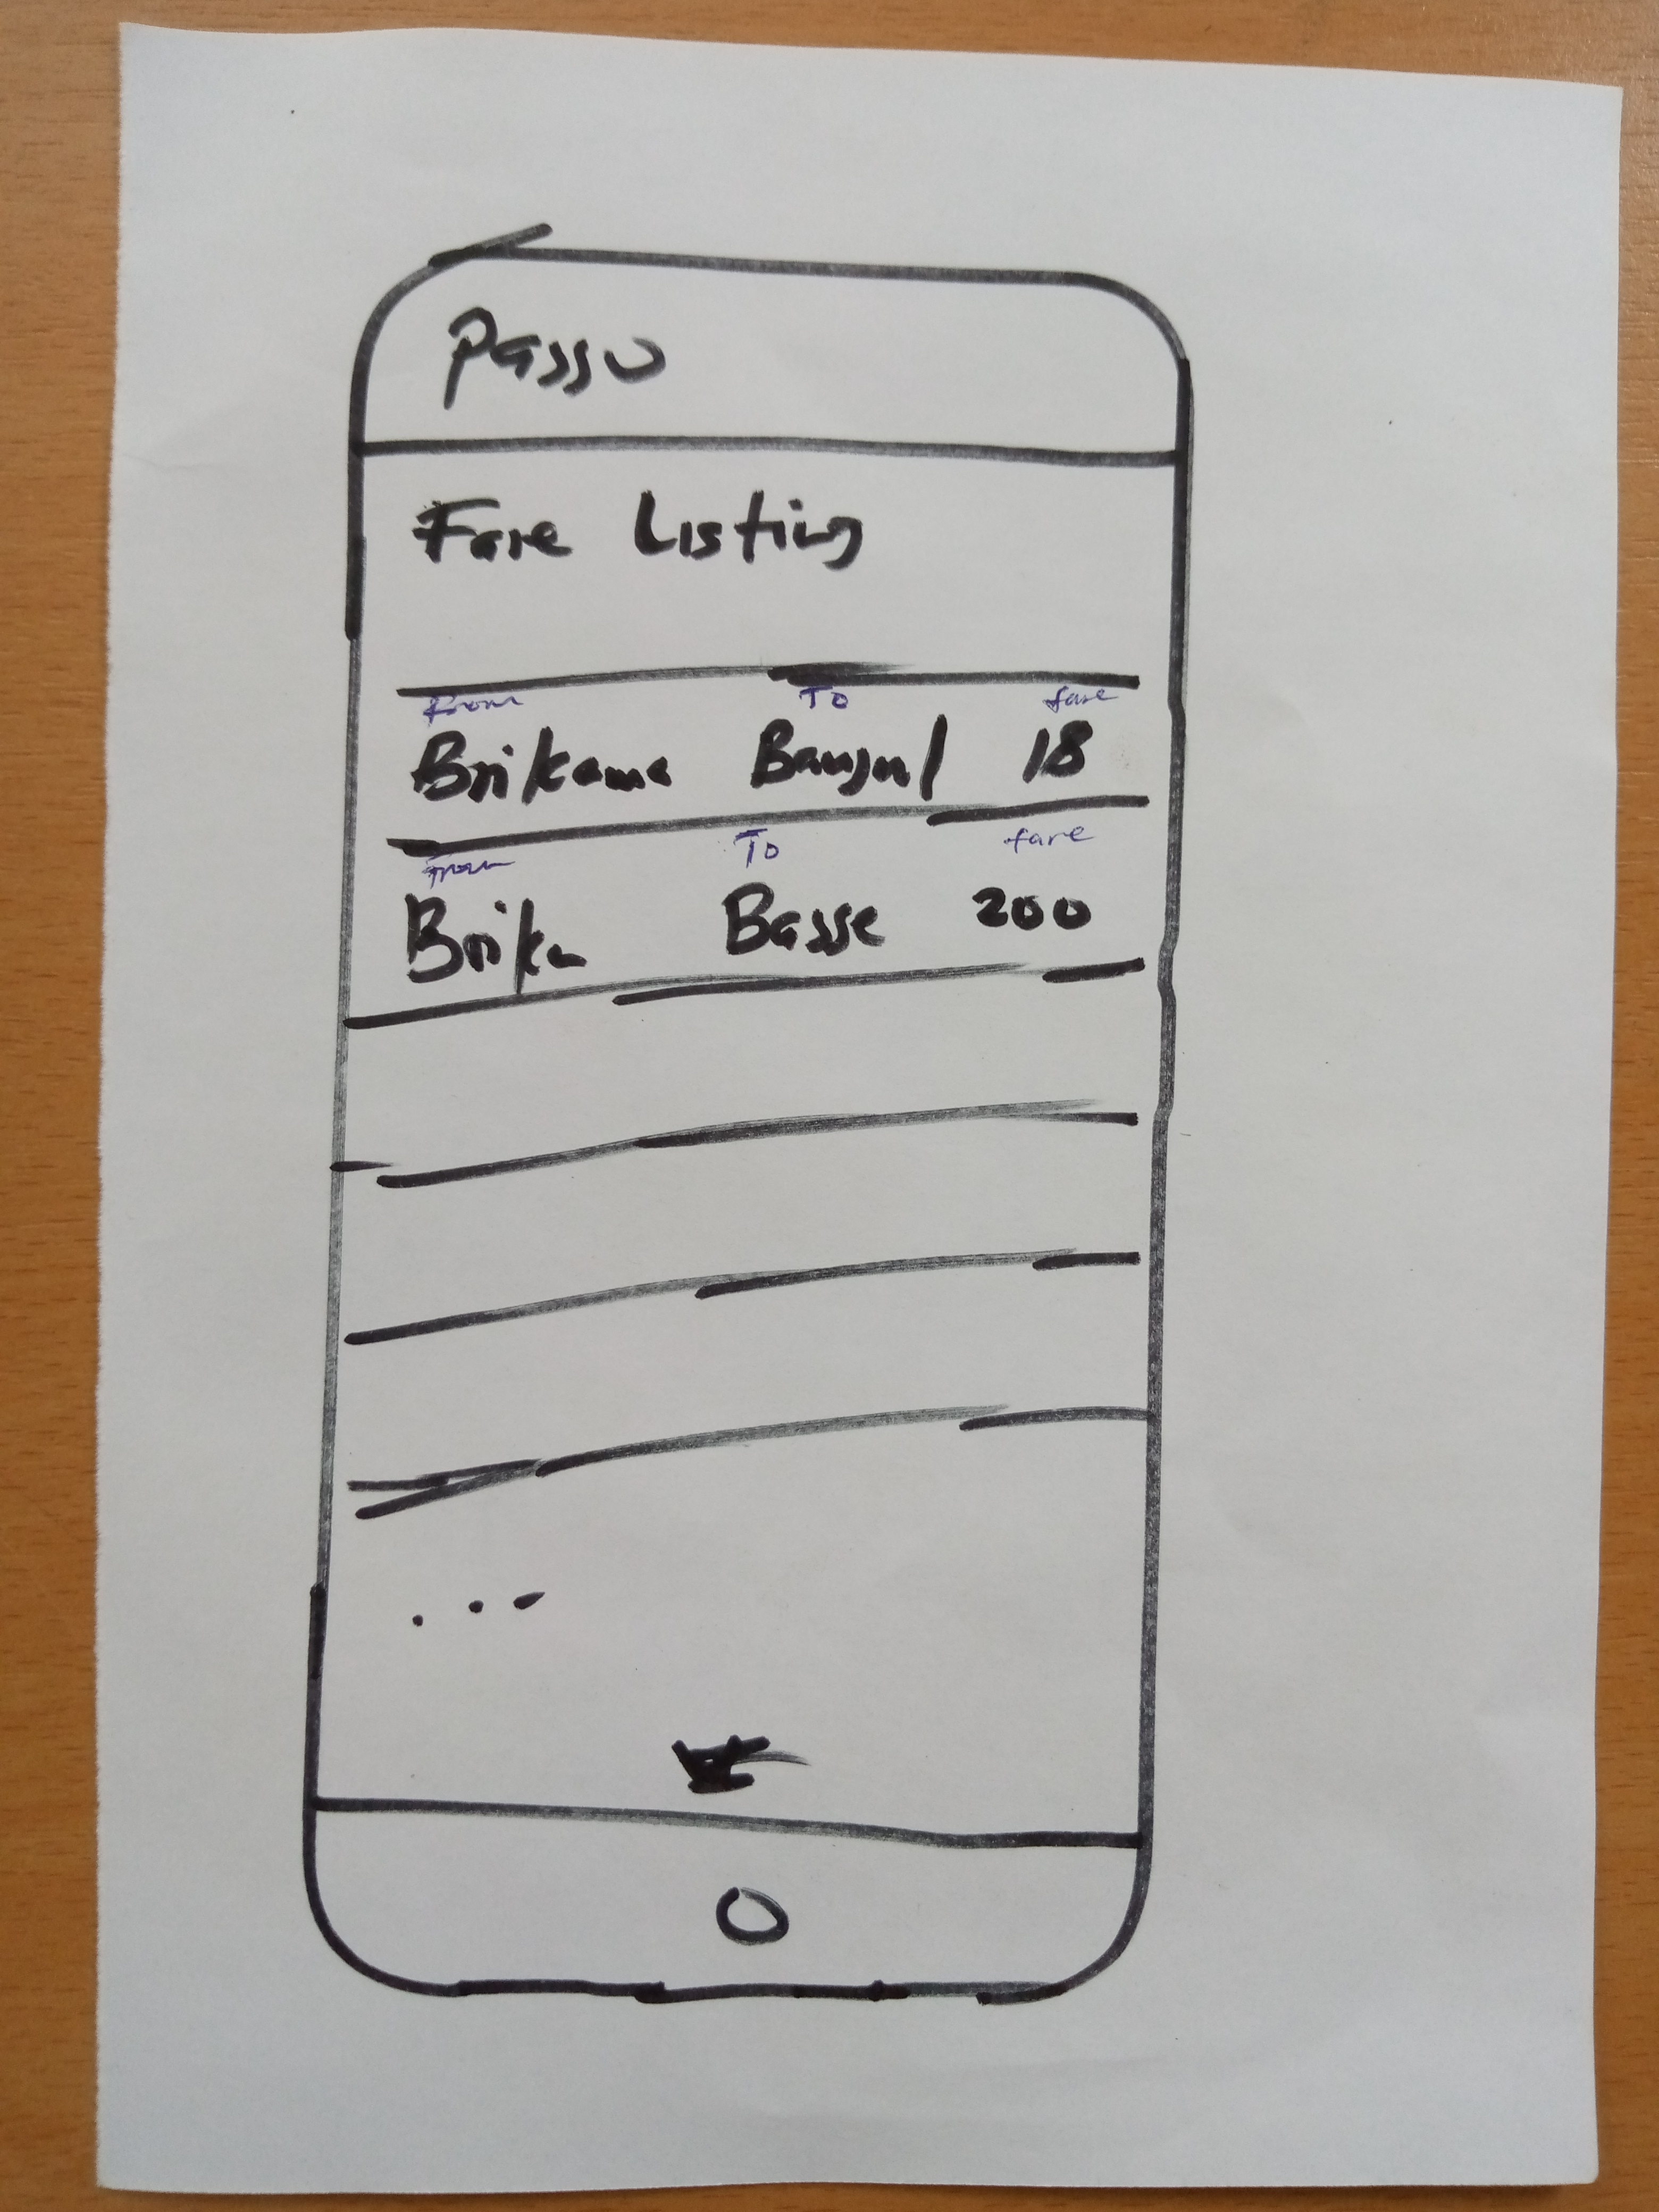 Passo
Fare Listing
From To fare
Brikama Banjul 18
From To fare
Brika Basse 200
...